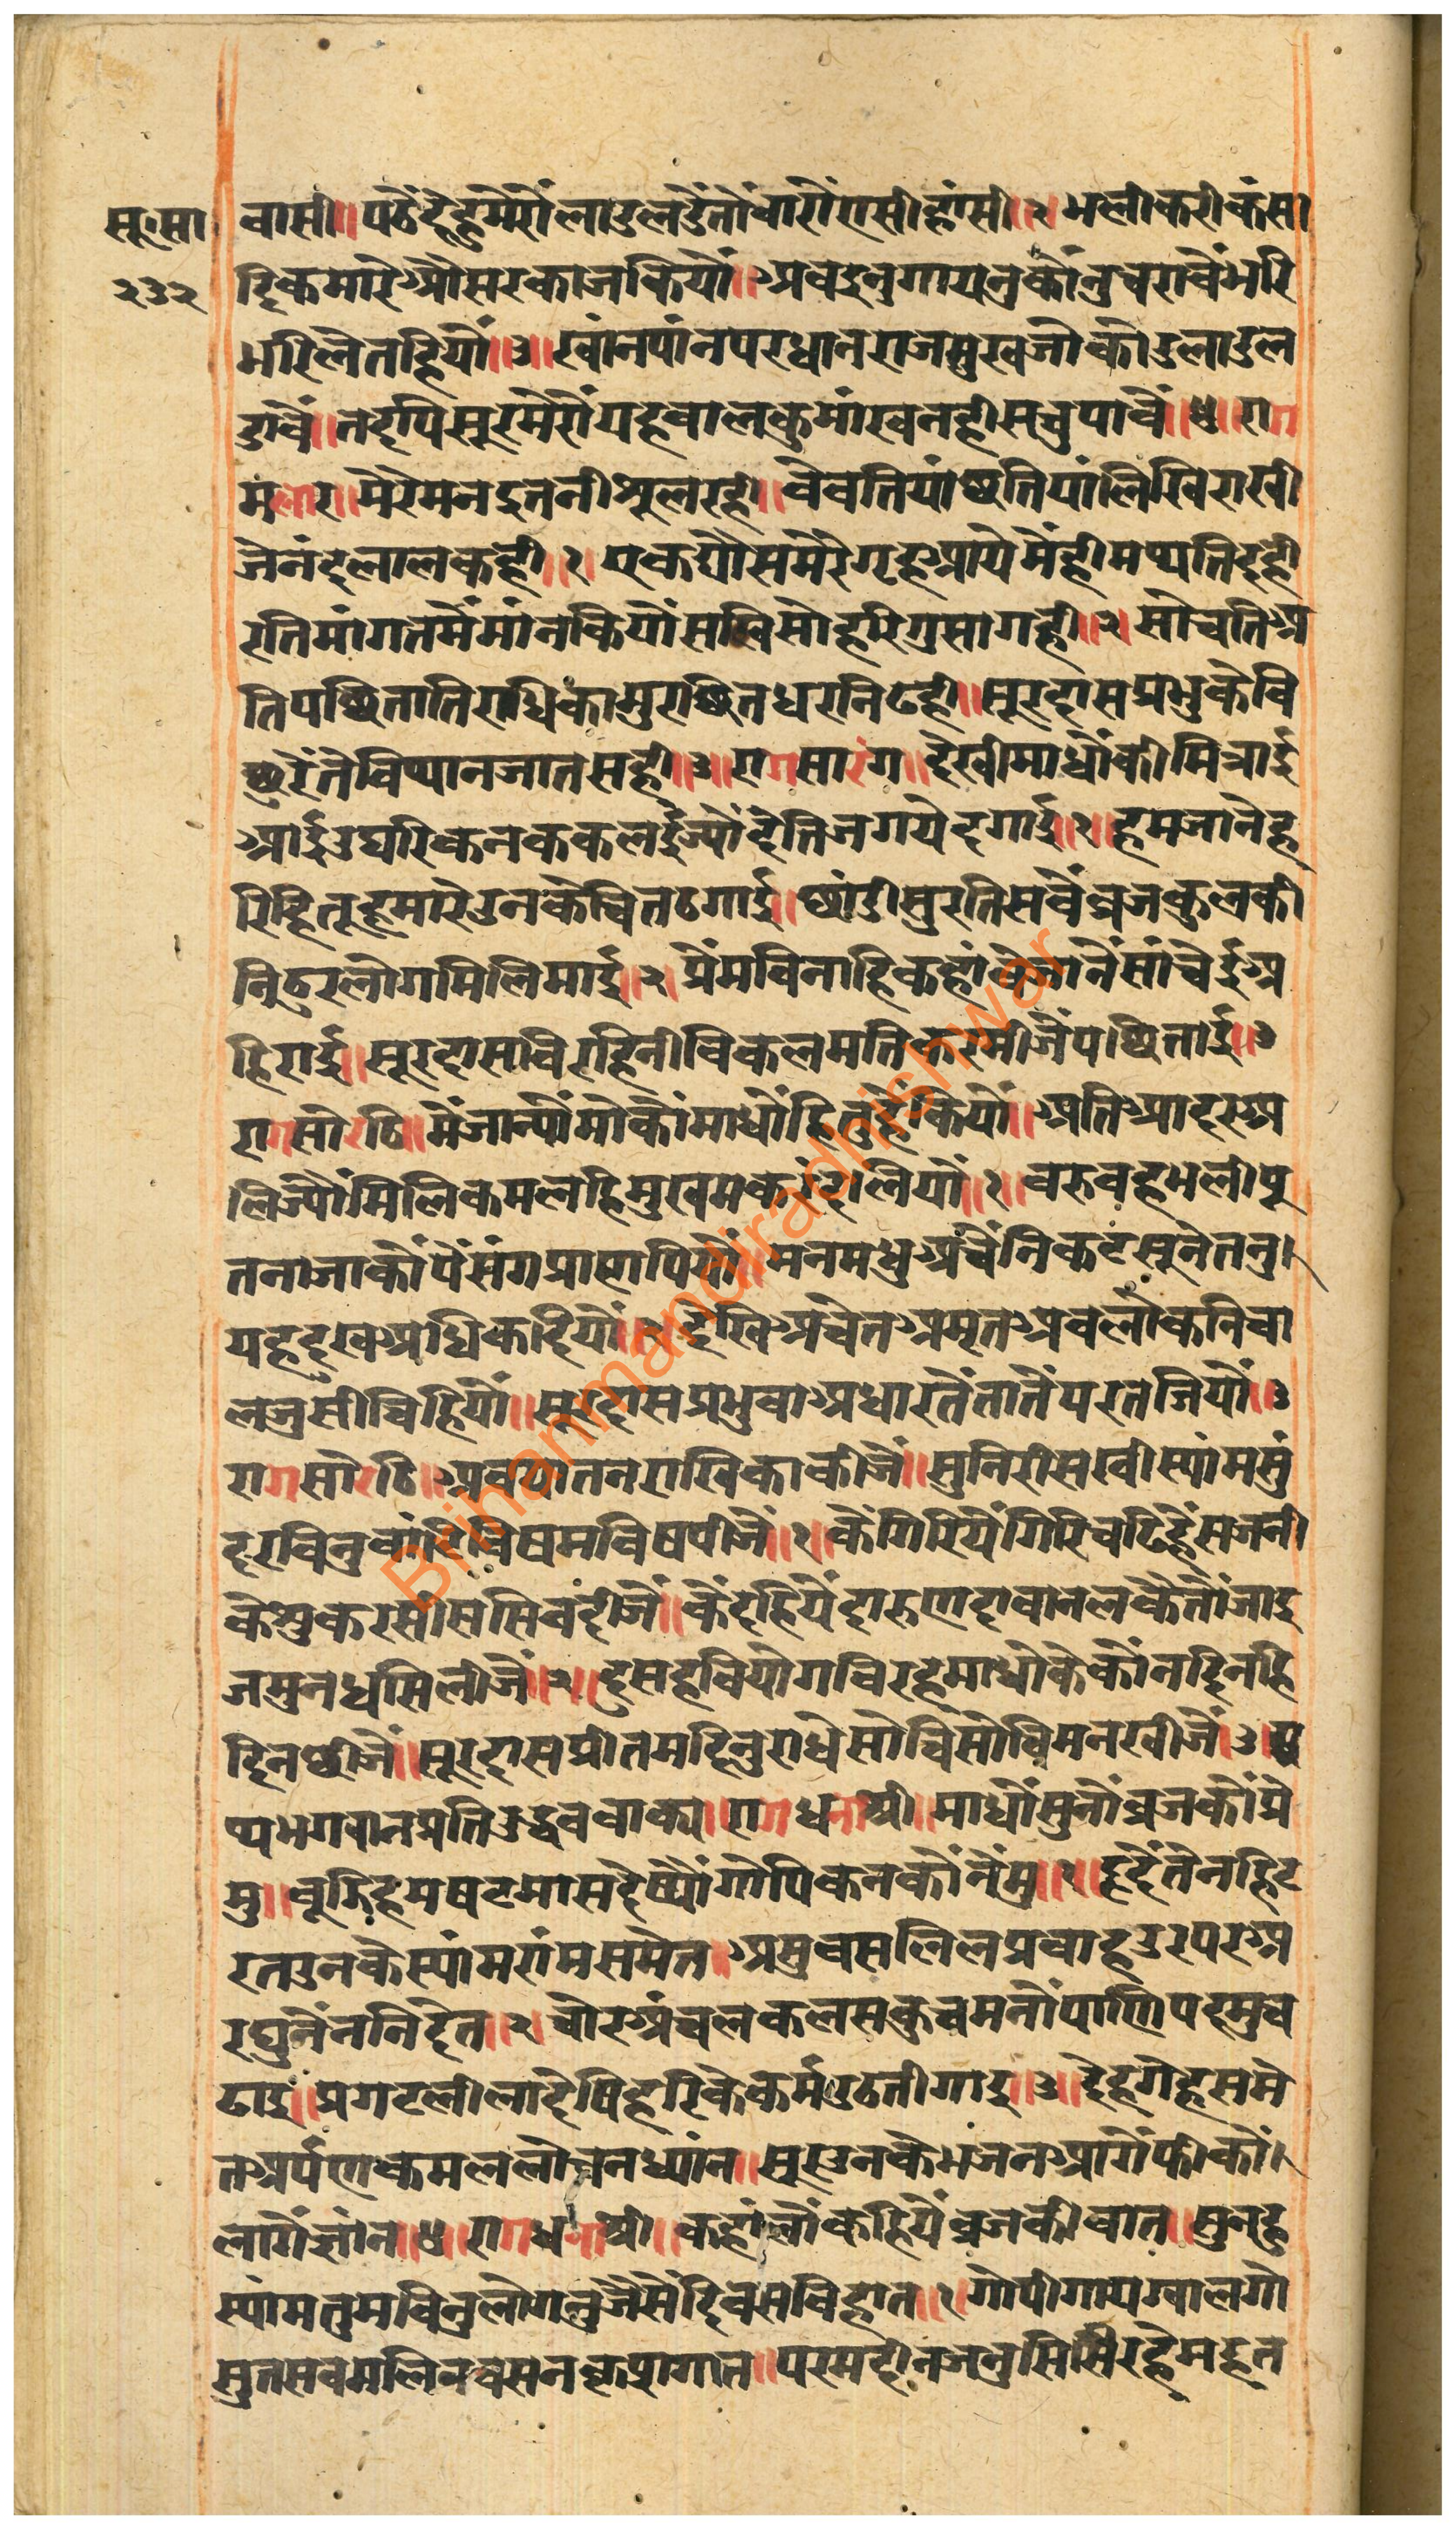 सू॰सा
२३२
वासी॥ पठैदेहुमेरोलाडुलडैतौवारौंएसीहांसी॥२॥ भलीकरीकंसा
दिकमारेऔसरकाजकियौ॥ अबइनुगायनुकौनुचरावैंभरि
भरिलेतहियौ॥३॥ खांनपांनपरधानराजसुखजोकोउलाडुल
डावैं॥ तदपिसूरमेरौयहबालकुमांखनहीसचुपावैं॥४॥ राग
मलार॥ मेरेमनइतनीशूलरही॥ वेबतियांछतियांलिखिराखी
जेनंदलालकही॥१॥ एकद्यौसमेरैगृहआयेमेंहीमथतिदही
रतिमांगतमेंमांनकियौसखिसोहरिगुसागही॥२॥ सोचतिअ
तिपछितातिराधिकामुरछितधरनिढही॥ सूरदासप्रभुकेबि
छुरेंतेंबिथानजातसही॥३॥ रागसारंग॥ देखीमाधौकीमित्राई
आईउघरिकनककलईज्योंदेनिजगयेदगाई॥१॥ हमजानेह
रिहितूहमारेउनकेचितठगाई॥ छांडीसुरतिसबैंब्रजकुलकी
निठुरलोगमिलिमाई॥२॥ प्रेंमबिनाहिकहांवेजानेंसांचेईअ
हिराई॥ सूरदासबिरहिनीबिकलमतिकरमीजैंपछिताई॥३
रागसोरठि॥ मैंजान्यौंमोकौंमाधौंहितुहैकियौ॥ अतिआदरअ
लिज्यौंमिलिकमलहिमुखमकरंदलियौ॥१॥ बरुवहभलीपू
तनाजाकौपैंसंगप्राणपियौ॥ मनमधुअंचैंनिकटसूनेतनु।
यहदुखअधिकदियौ॥२॥ देखिअचेतअमृतअवलोकनिचा
लजुसींचिहियौ॥ सूरदासप्रभुवाअधारतेंतातेंपरतजियौ॥३
रागसोरठि॥ अबयातनराखिकाकीजैं॥ सुनिरीसखीस्यांमसुं
दरबिनुबांटिबिषमबिषपीजैं॥१॥ कैंगिरियैंगिरिचढिकैंसजनी
कैंशुकरसीससिवंदीजैं॥ कैंदहियैंदारुणदावानलकैंतौंजाइ
जमुनधसिलीजैं॥२॥ दुसहबियोगबिरहमाधौकेकौनदिनहि
दिनछीजैं॥ सूरदासप्रीतमदिनुराधेसोचिसोचिमनखीजैं॥३॥
ष्यभगवानप्रतिउद्धवबाक्य॥ रागधनाश्री॥ माधौसुनौंब्रजकौंप्रे
मु॥ बूझिहमषटमासदेष्यौंगोपिकनकौंनेंमु॥१॥ हृदैंतेंनहिट
रतउनकैस्यांमरांमसमेत॥ अंसुवसलिलप्रवाहउरपरअ
रघुनेंननिदेत॥२॥ चोरअंचलकलसकुचमनौंपाणिपदमुच
ढाइ॥ प्रगटलीलादेषिहरिकेकर्मउठतीगाइ॥३॥ देहगेहसमे
तअर्पणकमललोचनध्यांन॥ सूरउनकेभजनआगेंफीकौं।
लागेंज्ञांन॥४॥ रागधनाश्री॥ कहांलौंकहियैंब्रजकीबात॥ सुनहु
स्यांमतुमबिनुलोगनुजैसेंदिवसबिहात॥१॥ गोपीगायग्वालगो
सुतसबमलिनबसनकृशगात॥ परमदीनजनुसिसिरहेमहृत